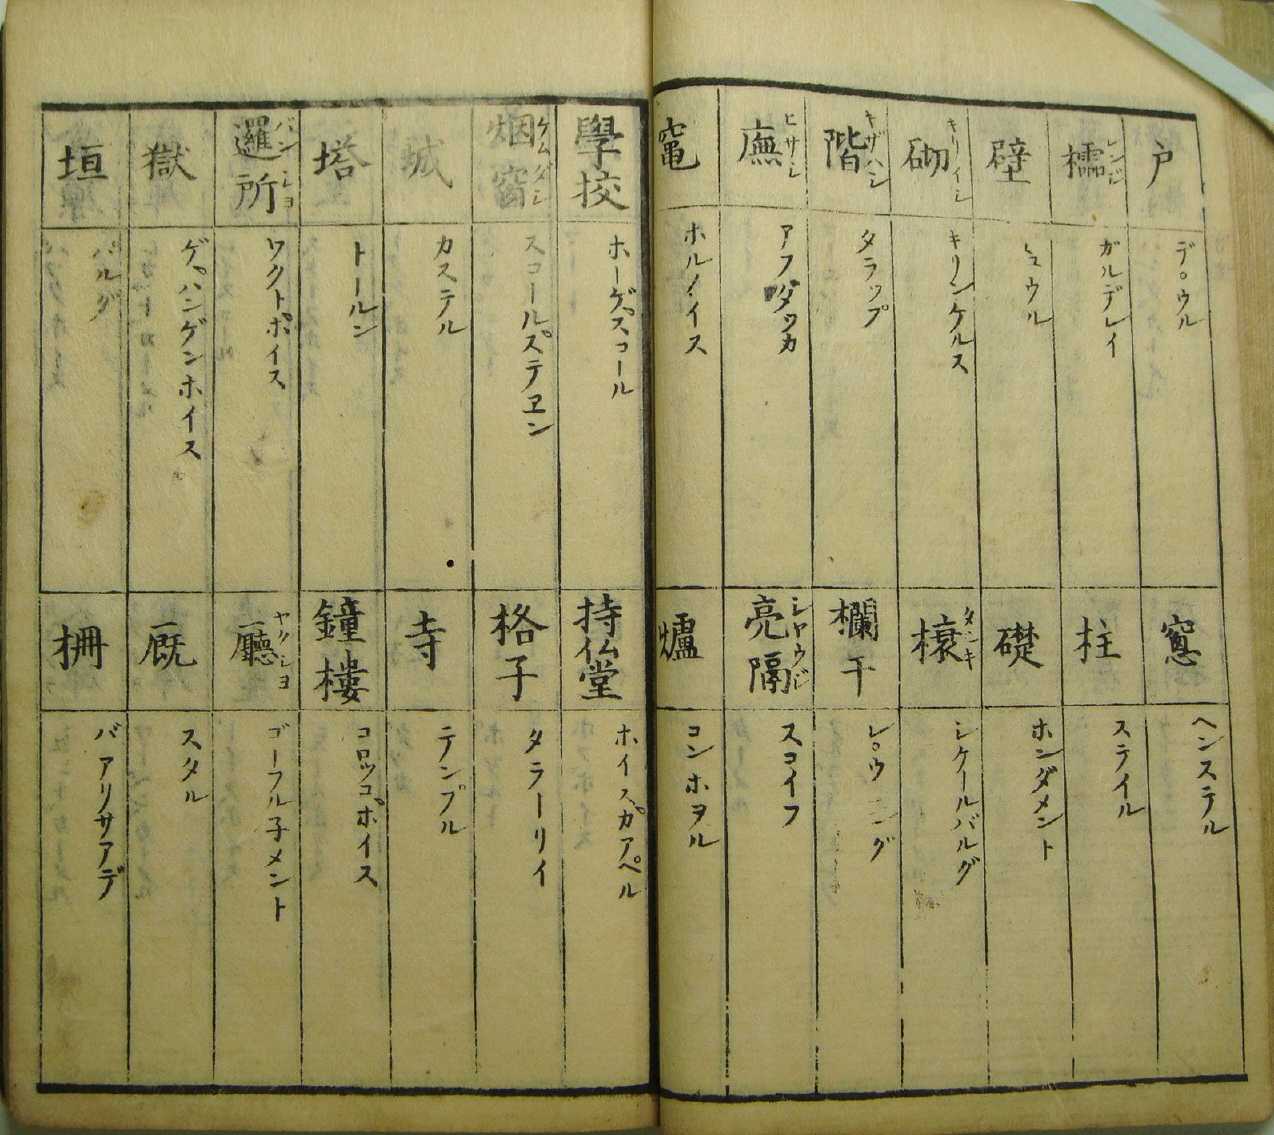 戸
デ。ウル
櫺 レンジ
ガルデレイ
壁
ミュウル
砌 キリイシ
キリンケルス
階 キザハシ
タラップ
廡 ヒサシ
アフダッカ
竃
ホルノイス
窓
ヘンステル
柱
ステイル
礎
ホンダメント
榱 タルキ
シケールバルグ
欄干
亮隔 シヤウジ
スコイフ
爐
コンホヲル
學挍
ホーゲスコール
烟窗 ケムダシ
スコールステエン
城
カステル
塔
トールン
邏所
ワクトホイス
獄
ゲハンゲンホイス
垣
バルグ
持仏堂
ホイスカアペル
格子
タラーリイ
寺
テンプル
鐘樓
コロッコホイス
廳 ヤクシヨ
ゴーフル子メント
厩
スタル
柵
バアリサアデ